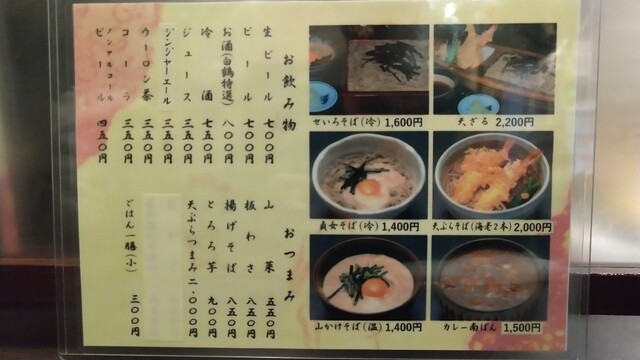 お飲み物
生ビール 七〇〇円
ビール 七〇〇円
お酒(白鶴特選) 八〇〇円
冷酒 七五〇円
ジュース 三五〇円
ジンジャーエール 三五〇円
ウーロン茶 三五〇円
コーラ 三五〇円
ノンアルコールビール 四五〇円
おつまみ
山菜 五五〇円
板わさ 八五〇円
揚げそば 八五〇円
とろろ芋 九〇〇円
天ぷらつまみ 二、〇〇〇円
ごはん一膳(小) 三〇〇円
せいろそば(冷) 1,600円
天ざる 2,200円
貞女そば(冷) 1,400円
天ぷらそば(海老2本) 2,000円
山かけそば(温) 1,400円
カレー南ばん 1,500円